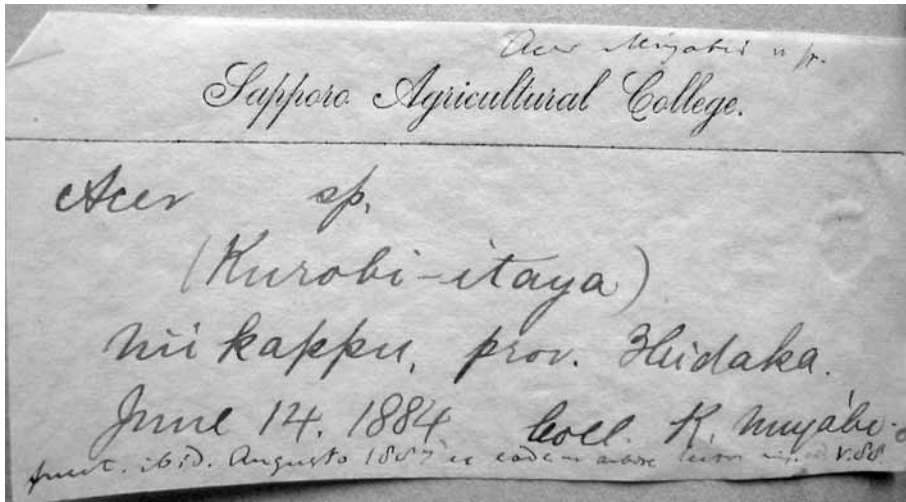 Acer Miyabei n. sp.
Sapporo Agricultural College.
Acer sp.
(Kurobi-itaya)
Niikappu, prov. Hidaka.
June 14. 1884 Coll. K. Miyabe.
ibid. Augusto 1887 eadem arbore V.88.